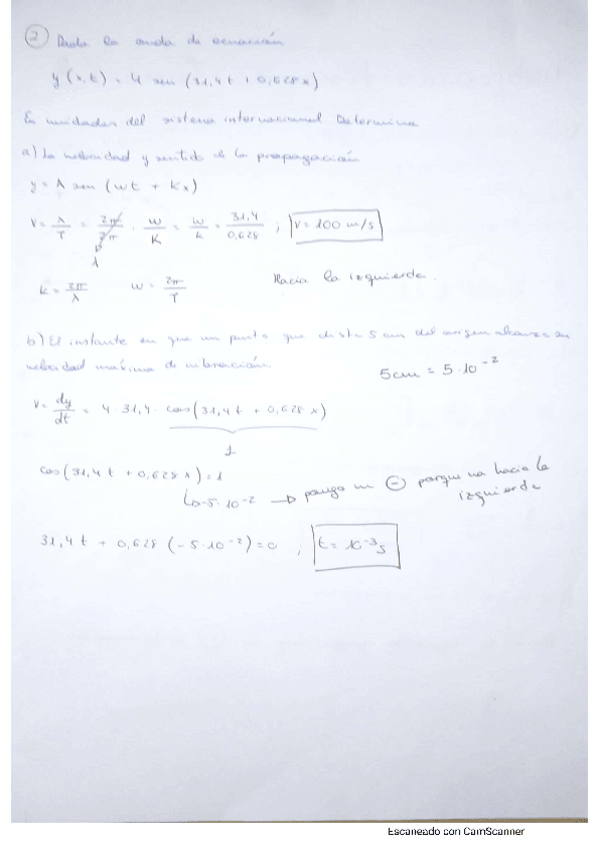 2 Dada la onda de ecuación
y (x,t) = 4 sen (31,4t + 0,628x)
En unidades del sistema internacional Determina
a) La velocidad y sentido de la propagación
y = A sen (wt + Kx)
v = λ/T = 2π/2π · w/K = w/k = 31,4/0,628 ; v = 100 m/s
λ
k = 2π/λ w = 2π/T Hacia la izquierda.
b) El instante en que un punto que dista 5 cm del origen alcanza su
velocidad máxima de vibración. 5cm = 5·10⁻²
v = dy/dt = 4 · 31,4 · cos(31,4t + 0,628x)
1
cos(31,4t + 0,628x) = 1
↳ -5·10⁻² → pongo un ⊖ porque va hacia la
izquierda
31,4t + 0,628 (-5·10⁻²) = 0 , t = 10⁻³s
Escaneado con CamScanner